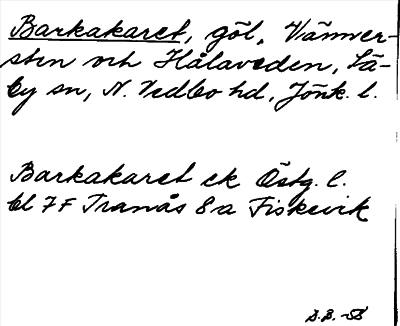 Barkakaret, göl, Vänner-
sten och Hålaveden, Lä-
by sn, N. Vedbo hd, Jönk. l.
Barkakaret ek Östg. l.
bl 7F Tranås 8a Fiskevik
B.B. -58